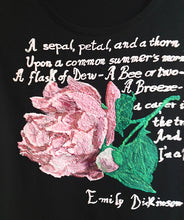 A sepal, petal, and a thorn
Upon a common summer's morn
A flask of Dew — A Bee or two —
A Breeze —
a caper i
the tre
And
I a
Emily Dickinson